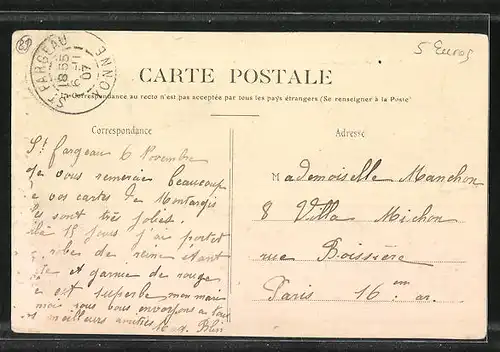 5 Euros
ST FARGEAU
18 55
6 -11
07
YONNE
CARTE POSTALE
Correspondance au recto n'est pas acceptée par tous les pays étrangers (Se renseigner à la Poste)
Correspondance
Adresse
St fargeau 6 Novembre
Je vous remercie beaucoup
de vos cartes de Montargis
sont très jolies.
15 jours j'ai porté
robe de reine étant
et garnie de rouge
est superbe mon mari
vous envoyons a tous
meilleurs amitiés
Blin
Mademoiselle Manchon
8 Villa Michon
rue Boissière
Paris 16 em ar.